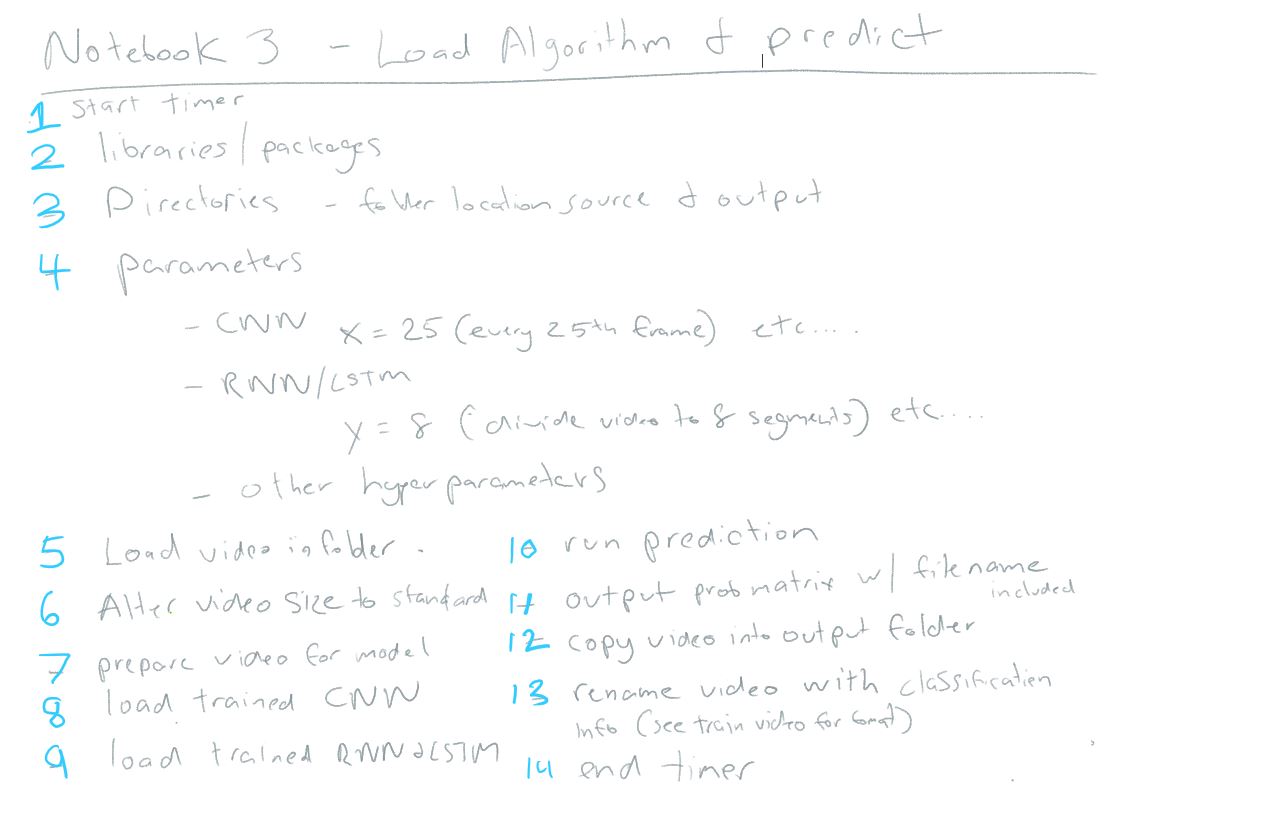 Notebook 3 - Load Algorithm & predict
1 Start timer
2 libraries/packages
3 Directories - folder location source & output
4 parameters
- CNN x = 25 (every 25th frame) etc....
- RNN/LSTM
y = 8 (divide video to 8 segments) etc....
- other hyperparameters
5 Load video in folder.
6 Alter video size to standard
7 prepare video for model
8 load trained CNN
9 load trained RNN & LSTM
10 run prediction
11 output prob matrix w/ filename
included
12 copy video into output folder
13 rename video with classification
info (see train video for format)
14 end timer